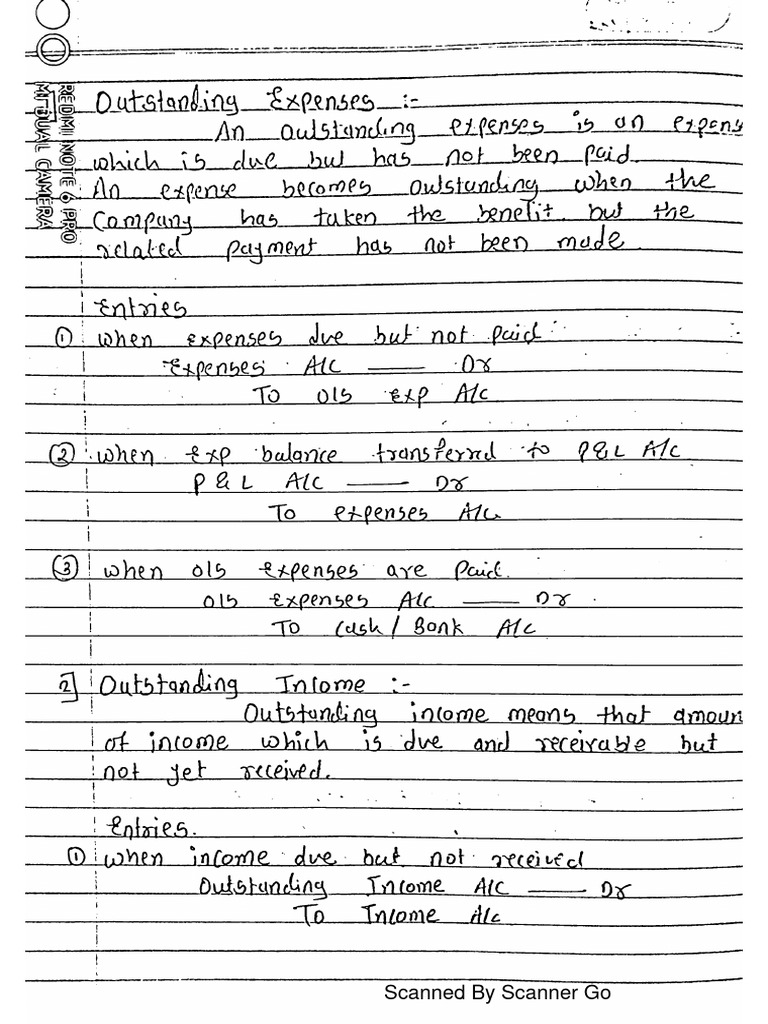 1] Outstanding Expenses :-
An outstanding expenses is an expens
which is due but has not been paid.
An expense becomes outstanding when the
Company has taken the benefit but the
related payment has not been made.
Entries
① when expenses due but not paid
Expenses A/c —— Dr
To o/s exp A/c
② when Exp balance transferred to P&L A/c
P & L A/c —— Dr
To expenses A/c
③ when o/s expenses are paid.
o/s expenses A/c —— Dr.
To cash / Bank A/c
2] Outstanding Income :-
Outstanding income means that amoun
of income which is due and receivable but
not yet received.
Entries.
① when income due but not received
Outstanding Income A/c —— Dr
To Income A/c
REDMI NOTE 6 PRO
MI DUAL CAMERA
Scanned By Scanner Go